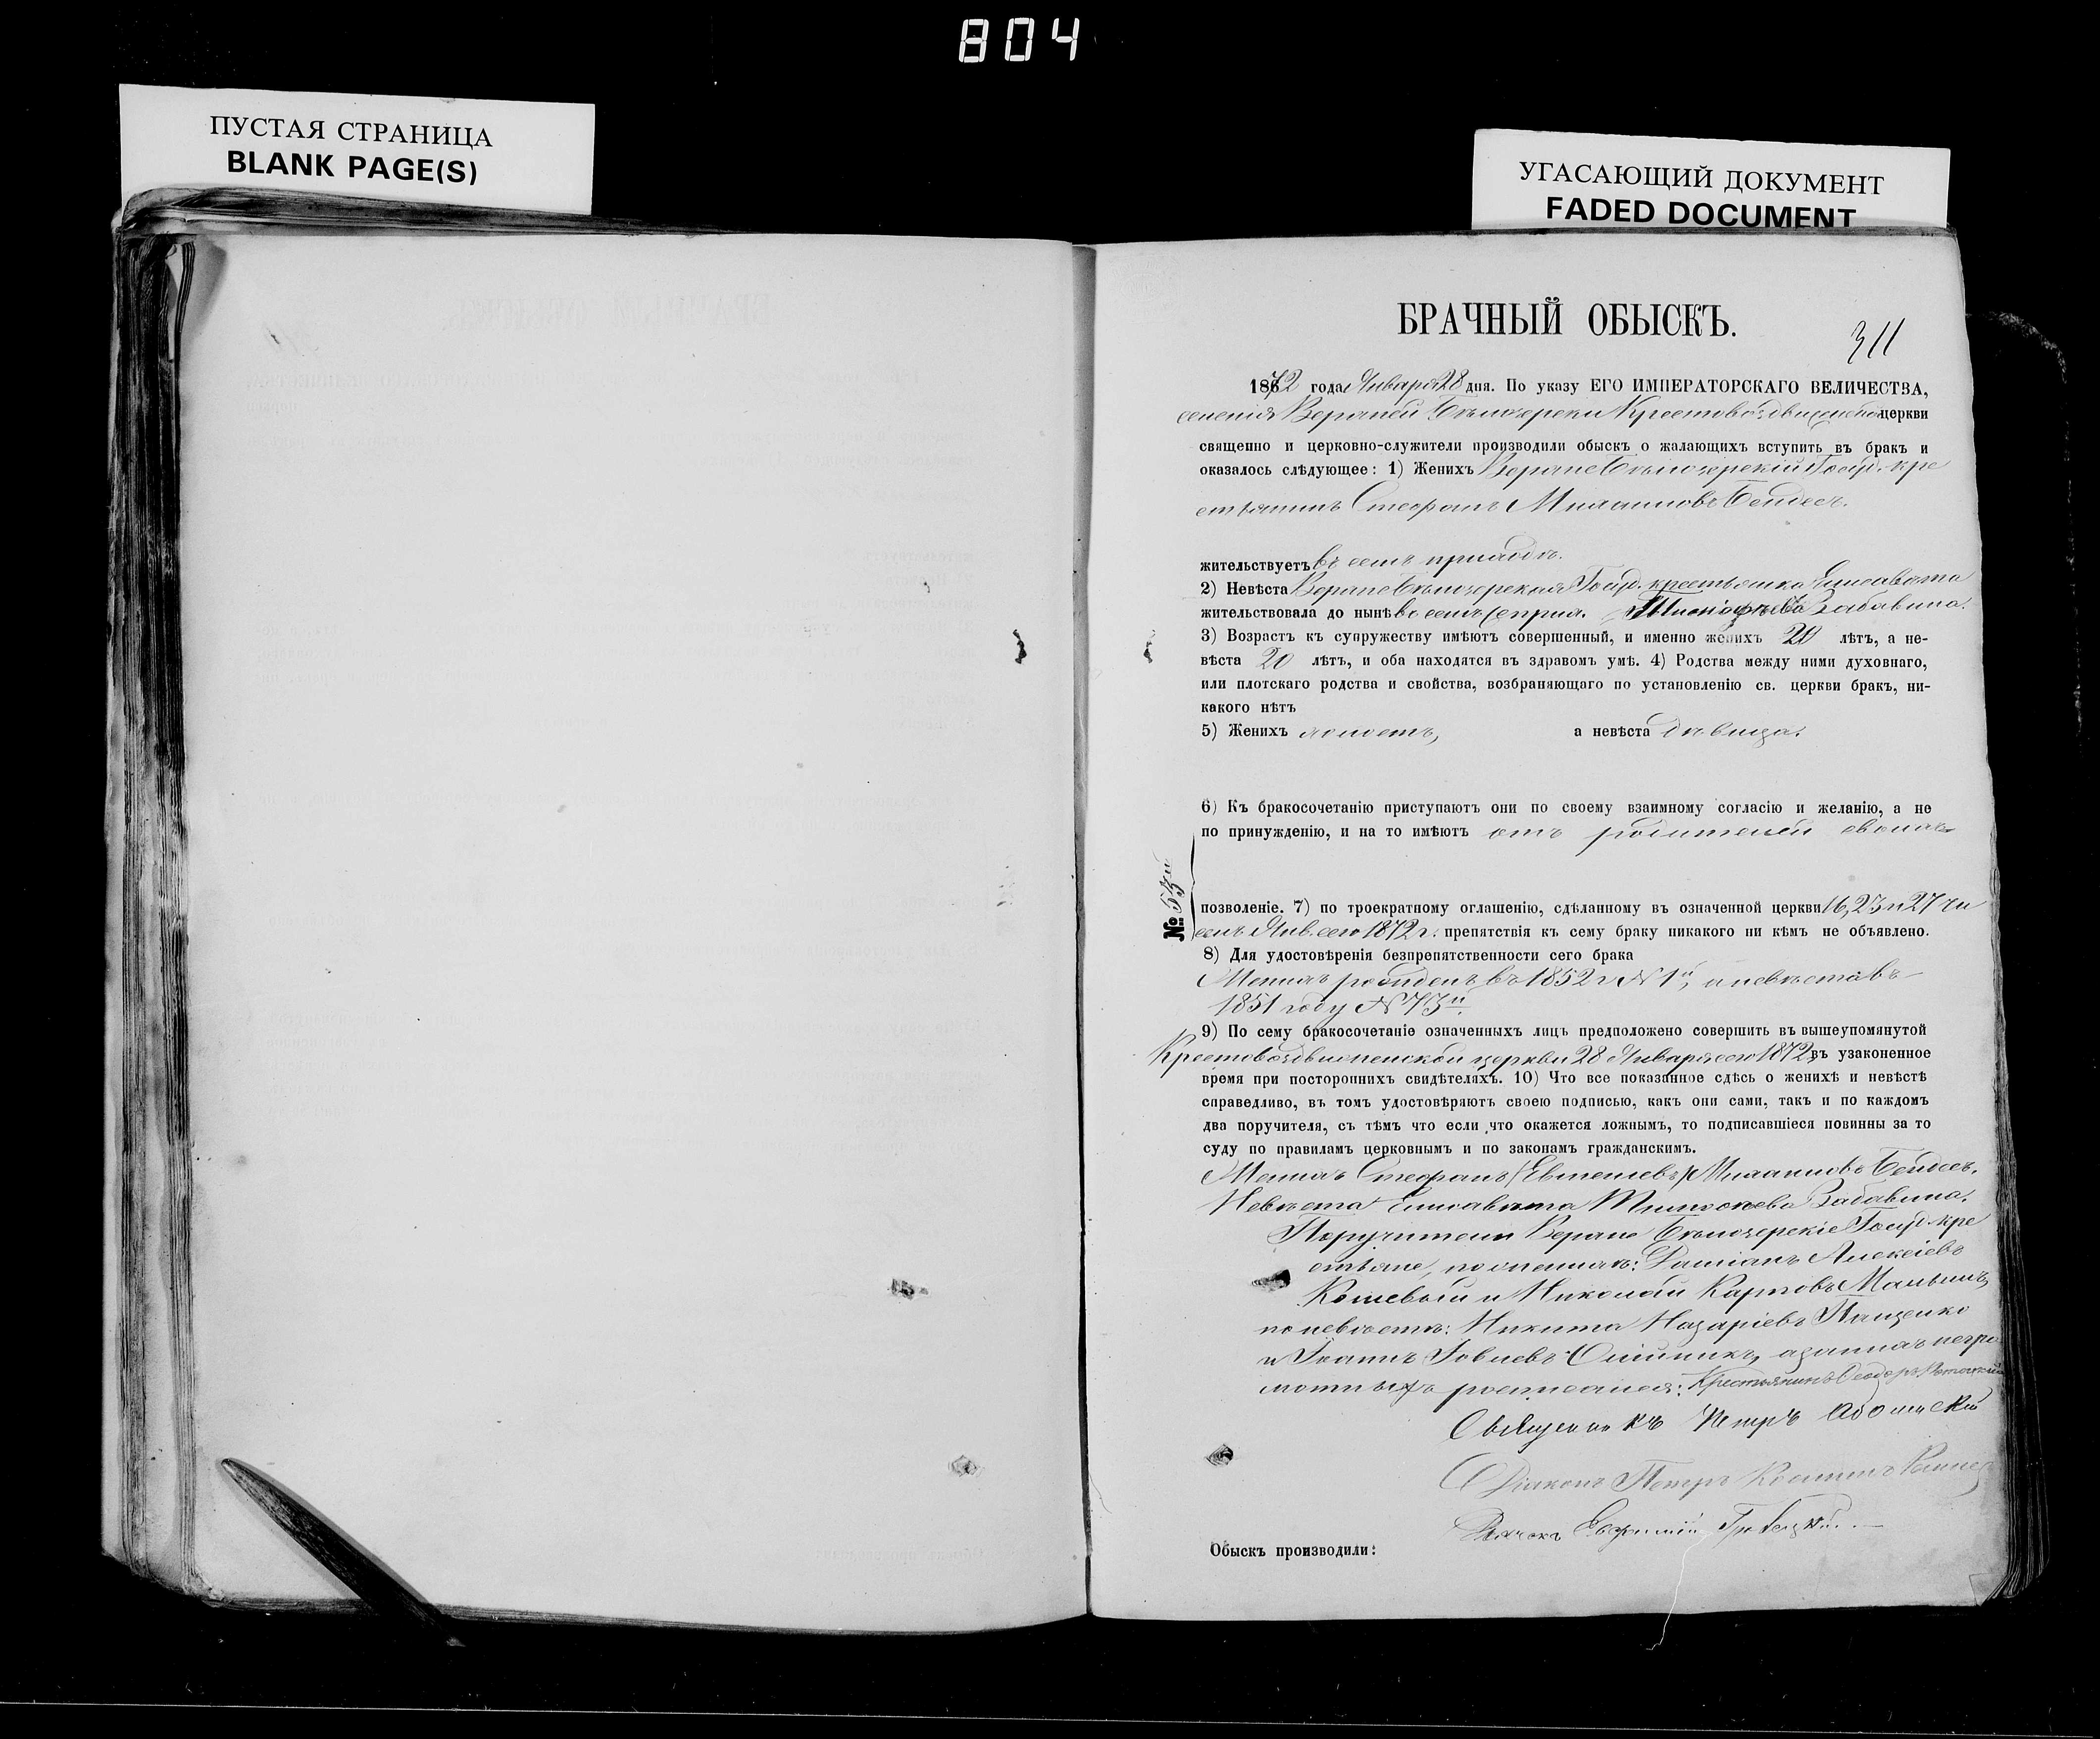 804
ПУСТАЯ СТРАНИЦА
BLANK PAGE(S)
УГАСАЮЩИЙ ДОКУМЕНТ
FADED DOCUMENT
БРАЧНЫЙ ОБЫСКЪ.
311
1872 года Января 28 дня. По указу ЕГО ИМПЕРАТОРСКАГО ВЕЛИЧЕСТВА,
селенія Верхней Бѣлозерки Крестовоздвиженской церкви
священно и церковно-служители производили обыскъ о жалающихъ вступить въ бракъ и
оказалось слѣдующее: 1) Женихъ Верхнебѣлозерскій Госуд. кре
стьянинъ Стефанъ Михаиловъ
жительствуетъ въ семъ приходѣ.
2) Невѣста Верхнебѣлозерская Госуд. крестьянка Елисавета
жительствовала до нынѣ въ семъ Забавина.
3) Возрастъ къ супружеству имѣютъ совершенный, и именно женихъ 20 лѣтъ, а не-
вѣста 20 лѣтъ, и оба находятся въ здравомъ умѣ. 4) Родства между ними духовнаго,
или плотскаго родства и свойства, возбраняющаго по установленію св. церкви бракъ, ни-
какого нѣтъ
5) Женихъ холостъ, а невѣста дѣвица.
6) Къ бракосочетанію приступаютъ они по своему взаимному согласію и желанію, а не
по принужденію, и на то имѣютъ отъ родителей своихъ
№ 53й
позволеніе. 7) по троекратному оглашенію, сдѣланному въ означенной церкви 16, 23 и 27 чи
селъ Янв. сего 1872 г. препятствія къ сему браку никакого ни кѣмъ не объявлено.
8) Для удостовѣренія безпрепятственности сего брака
Женихъ рожденъ въ 1852 г. № 1й, а невѣста въ
1851 году № 73й.
9) По сему бракосочетаніе означенныхъ лицъ предположено совершить въ вышеупомянутой
Крестовоздвиженской церкви 28 Января сего 1872 въ узаконенное
время при постороннихъ свидѣтеляхъ. 10) Что все показанное сдѣсь о женихѣ и невѣстѣ
справедливо, въ томъ удостовѣряютъ своею подписью, какъ они сами, такъ и по каждомъ
два поручителя, съ тѣмъ что если что окажется ложнымъ, то подписавшіеся повинны за то
суду по правиламъ церковнымъ и по законамъ гражданскимъ.
Женихъ Стефанъ Михаиловъ
Невѣста Елисавета Забавина.
Поручители Верхне Бѣлозерскіе Госуд. кре
стьяне, по женихѣ: Даміанъ Алексіевъ
Кошевый и Николай Карповъ
по невѣстѣ: Никита Назаріевъ Пащенко
и Іоаннъ Іовлевъ а за нихъ негра
мотныхъ росписался: Крестьянинъ Ѳеодоръ
Священникъ Петръ
Діаконъ Петръ Константи
Обыскъ производили: